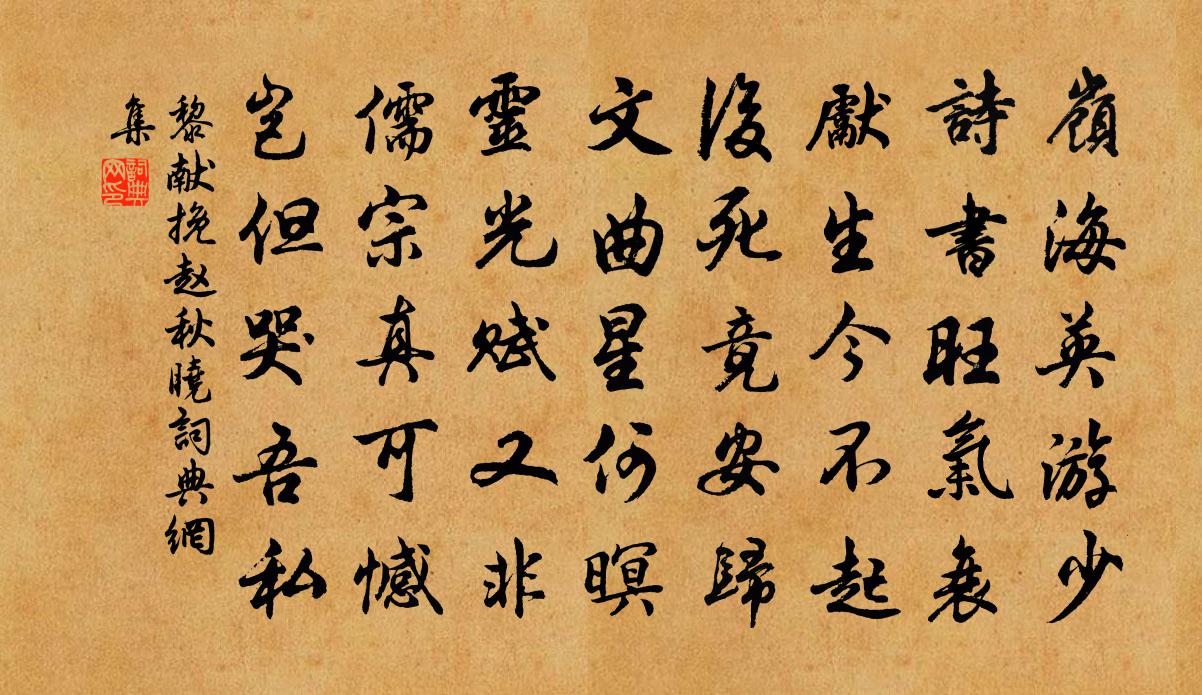 嶺海英游少
詩書旺氣衰
獻生今不起
後死竟安歸
文曲星何暝
靈光賦又非
儒宗真可憾
岂但哭吾私
黎献挽赵秋曉詞典網
集
詞典
网印